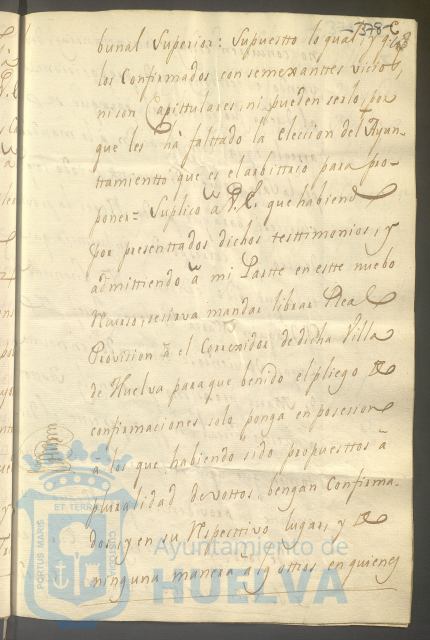 -378-C
bunal Superior: Supuestto lo qual, y q.e
los Confirmados con semexanttes vicios,
ni son Capittulares, ni pueden serlo, por
que les ha falttado la eleccion del Ayun-
ttamientto que es el arbittrio para pro-
poner= Suplico a V.A. que habiendo
por presenttados dichos testtimonios, y
admittiendo a mi Partte en estte nuebo
recurso, se sirva mandar librar Real
Provision a el Correxidor de dicha Villa
de Huelva para que benido el pliego de
confirmaciones solo ponga en posesion
a los que habiendo sido propuesttos a
pluralidad de vottos, bengan Confirma-
dos, y en su respecttivo lugar, y de
ninguna manera a ottros en quienes
PORTUS MARIS ET TERRAE CUSTODIO
Ayuntamiento de
HUELVA